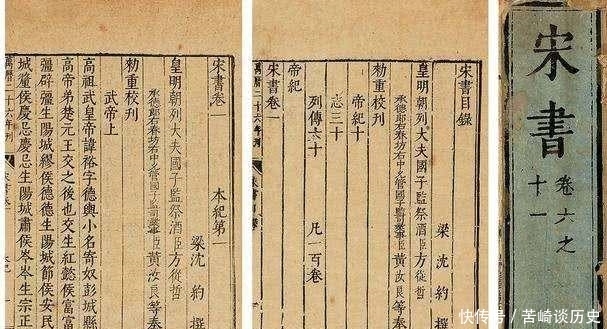 宋書
卷六之
十一
宋書目錄
梁沈約撰
皇明朝列大夫國子監祭酒臣方從哲
承德郎右春坊右中允管國子監司業事臣黃汝良等奉
勑重校刊
帝紀十
志三十
列傳六十
凡一百卷
帝紀
宋書卷一
萬曆二十六年刊
宋書卷一 本紀第一
梁沈約撰
皇明朝列大夫國子監祭酒臣方從哲
承德郎右春坊右中允管國子監司業事臣黃汝良等奉
勑重校刊
武帝上
高祖武皇帝諱裕字德輿小名寄奴彭城縣
高帝弟楚元王交之後也交生紅懿侯富富
彊辟彊生陽城繆侯德德生陽城節侯安民
城釐侯慶忌慶忌生陽城肅侯岑岑生宗正
萬曆二十六年刊
快传号 / 苦崎谈历史